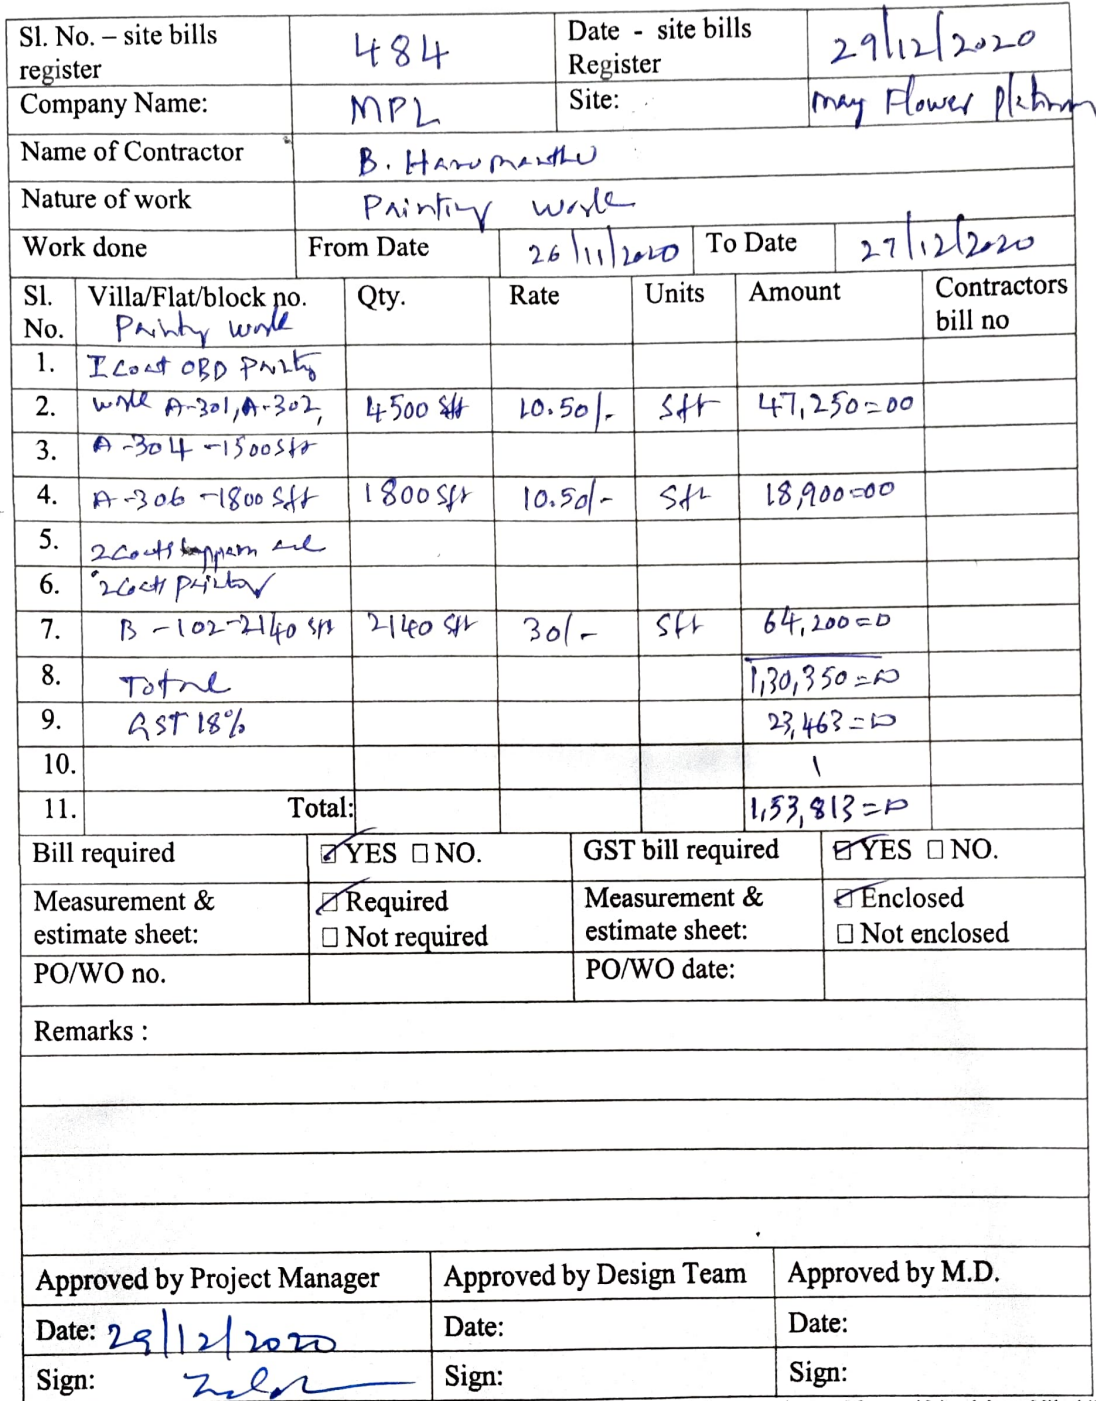 Sl. No. – site bills register 484 Date - site bills Register 29/12/2020
Company Name: MPL Site: May Flower Platinum
Name of Contractor B. Hanumanthu
Nature of work Painting work
Work done From Date 26/11/2020 To Date 27/12/2020
Sl. No. Villa/Flat/block no. Qty. Rate Units Amount Contractors bill no
Painting work
1. I Coat OBD Painting
2. work A-301, A-302, 4500 Sft 10.50/- Sft 47,250=00
3. A-304 -1500 Sft
4. A-306 -1800 Sft 1800 Sft 10.50/- Sft 18,900=00
5. 2 Coats
6. 2 Coats Painting
7. B-102-2140 Sft 2140 Sft 30/- Sft 64,200=0
8. Total 1,30,350=00
9. GST 18% 23,463=00
10.
11. Total: 1,53,813=00
Bill required ☑ YES ☐ NO. GST bill required ☑ YES ☐ NO.
Measurement & estimate sheet: ☑ Required ☐ Not required Measurement & estimate sheet: ☑ Enclosed ☐ Not enclosed
PO/WO no. PO/WO date:
Remarks :
Approved by Project Manager Approved by Design Team Approved by M.D.
Date: 29/12/2020 Date: Date:
Sign: Sign: Sign: